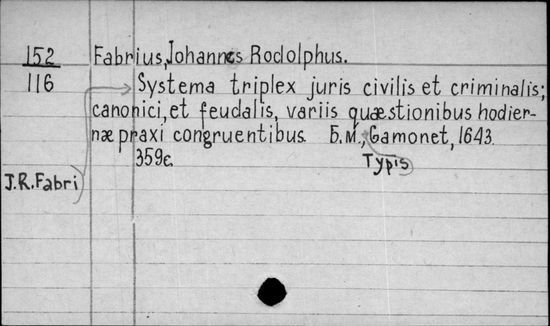 152 Fabrius, Johannes Rodolphus.
116 Systema triplex juris civilis et criminalis;
canonici, et feudalis, variis quæstionibus hodier-
næ praxi congruentibus. Б.М., Gamonet, 1643.
359с.
Typis
J.R.Fabri